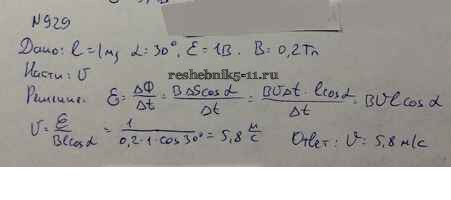 №929
Дано: l=1м, α=30°, ℰ=1В. B=0,2Тл
Найти: υ
reshebnik5-11.ru
Решение. ℰ = ΔΦ/Δt = BΔS cosα/Δt = BυΔt·l cosα/Δt = Bυl cosα
υ = ℰ/Bl cosα = 1/0,2·1·cos30° = 5,8 м/с Ответ: υ = 5,8 м/с